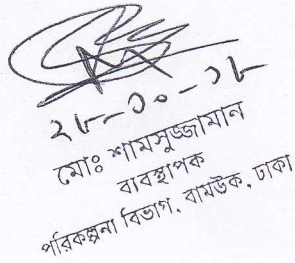 ২৮-১০-১৮
মোঃ শামসুজ্জামান
ব্যবস্থাপক
পরিকল্পনা বিভাগ, বামউক, ঢাকা